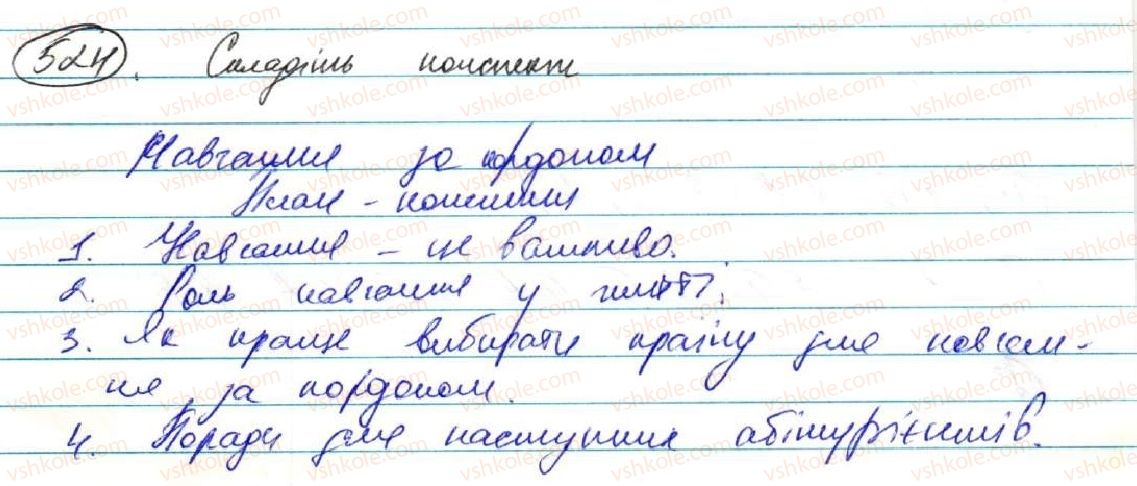 524. Складіть конспект
Навчання за кордоном
План - конспект
1. Навчання - це важливо.
2. Роль навчання у житті.
3. Як краще вибирати країну для навчан-
ня за кордоном.
4. Поради для наступних абітурієнтів.